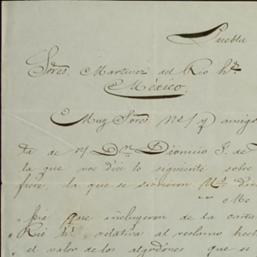 Puebla
Sores. Martinez del Rio Hos.
México.
Muy Sores. Ns/ y amigos
ta de n/ Dn. Dionicio S. de
la que nos dice lo siguiente sobre
la que se sirvieron
que incluyeron de la carta
Rio hs. relativa al reclamo hech
el valor de los algodones que se